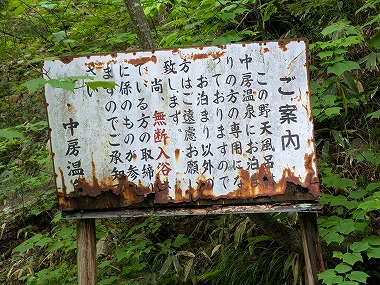 ご案内
この野天風呂
中房温泉にお泊
りの方の専用にな
っておりますので
お泊まり以外
方はご遠慮お願
致します。
尚 無断入浴
ている方の取締
に係のものが参
ますのでご承知
さい
中房温